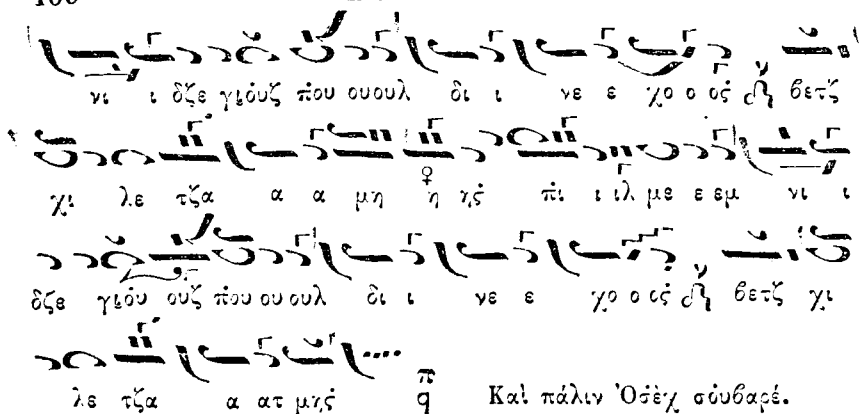 νι ι δζε γιοὺζ ποῦ ουουλ δι ι νε ε χο ο ος βετζ
χι λε τζα α α μη η ης πι ι ιλ με ε εμ νι ι
δζε γιοὺ ουζ ποῦ ου ουλ δι ι νε ε χο ο ος βετζ χι
λε τζα α ατ μης Καὶ πάλιν Ὀσὲχ σούβαρέ.